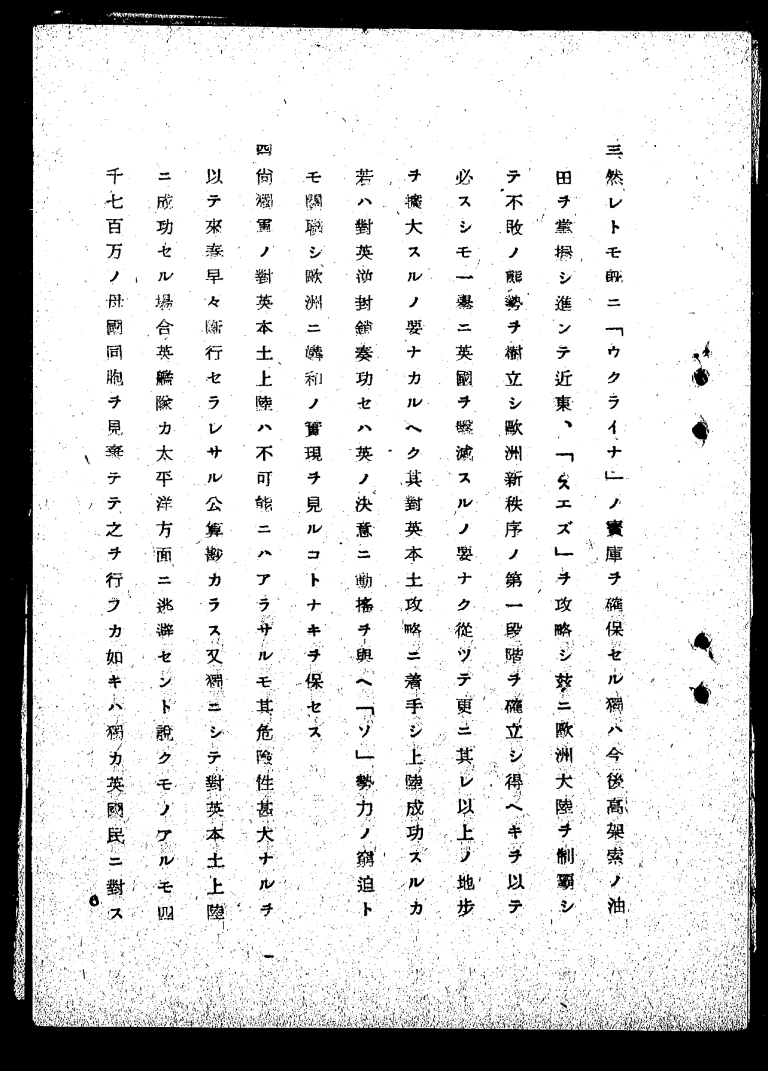 三、然レトモ既ニ「ウクライナ」ノ寶庫ヲ確保セル獨ハ今後高架索ノ油
田ヲ掌握シ進ンテ近東、「スエズ」ヲ攻略シ玆ニ歐洲大陸ヲ制覇シ
テ不敗ノ態勢ヲ樹立シ歐洲新秩序ノ第一段階ヲ確立シ得ヘキヲ以テ
必スシモ一擧ニ英國ヲ擊滅スルノ要ナク從ツテ更ニ其レ以上ノ地步
ヲ擴大スルノ要ナカルヘク其對英本土攻略ニ着手シ上陸成功スルカ
若ハ對英逆封鎖奏功セハ英ノ決意ニ動搖ヲ與ヘ「ソ」勢力ノ窮迫ト
モ關聯シ歐洲ニ媾和ノ實現ヲ見ルコトナキヲ保セス
四、尙獨軍ノ對英本土上陸ハ不可能ニハアラサルモ其危險性甚大ナルヲ
以テ來春早々斷行セラレサル公算尠カラス又獨ニシテ對英本土上陸
ニ成功セル場合英艦隊カ太平洋方面ニ逃避セント說クモノアルモ四
千七百万ノ母國同胞ヲ見棄テテ之ヲ行フカ如キハ獨カ英國民ニ對ス